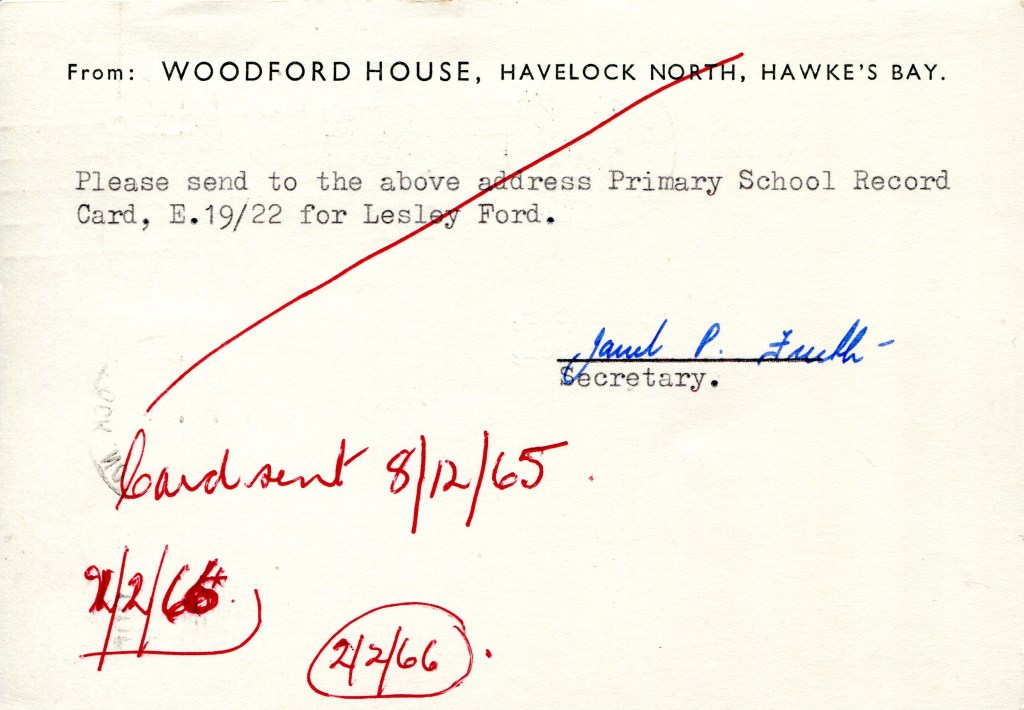 From: WOODFORD HOUSE, HAVELOCK NORTH, HAWKE'S BAY.
Please send to the above address Primary School Record
Card, E.19/22 for Lesley Ford.
Janet P.
Secretary.
Card sent 8/12/65.
2/2/66
2/2/66.